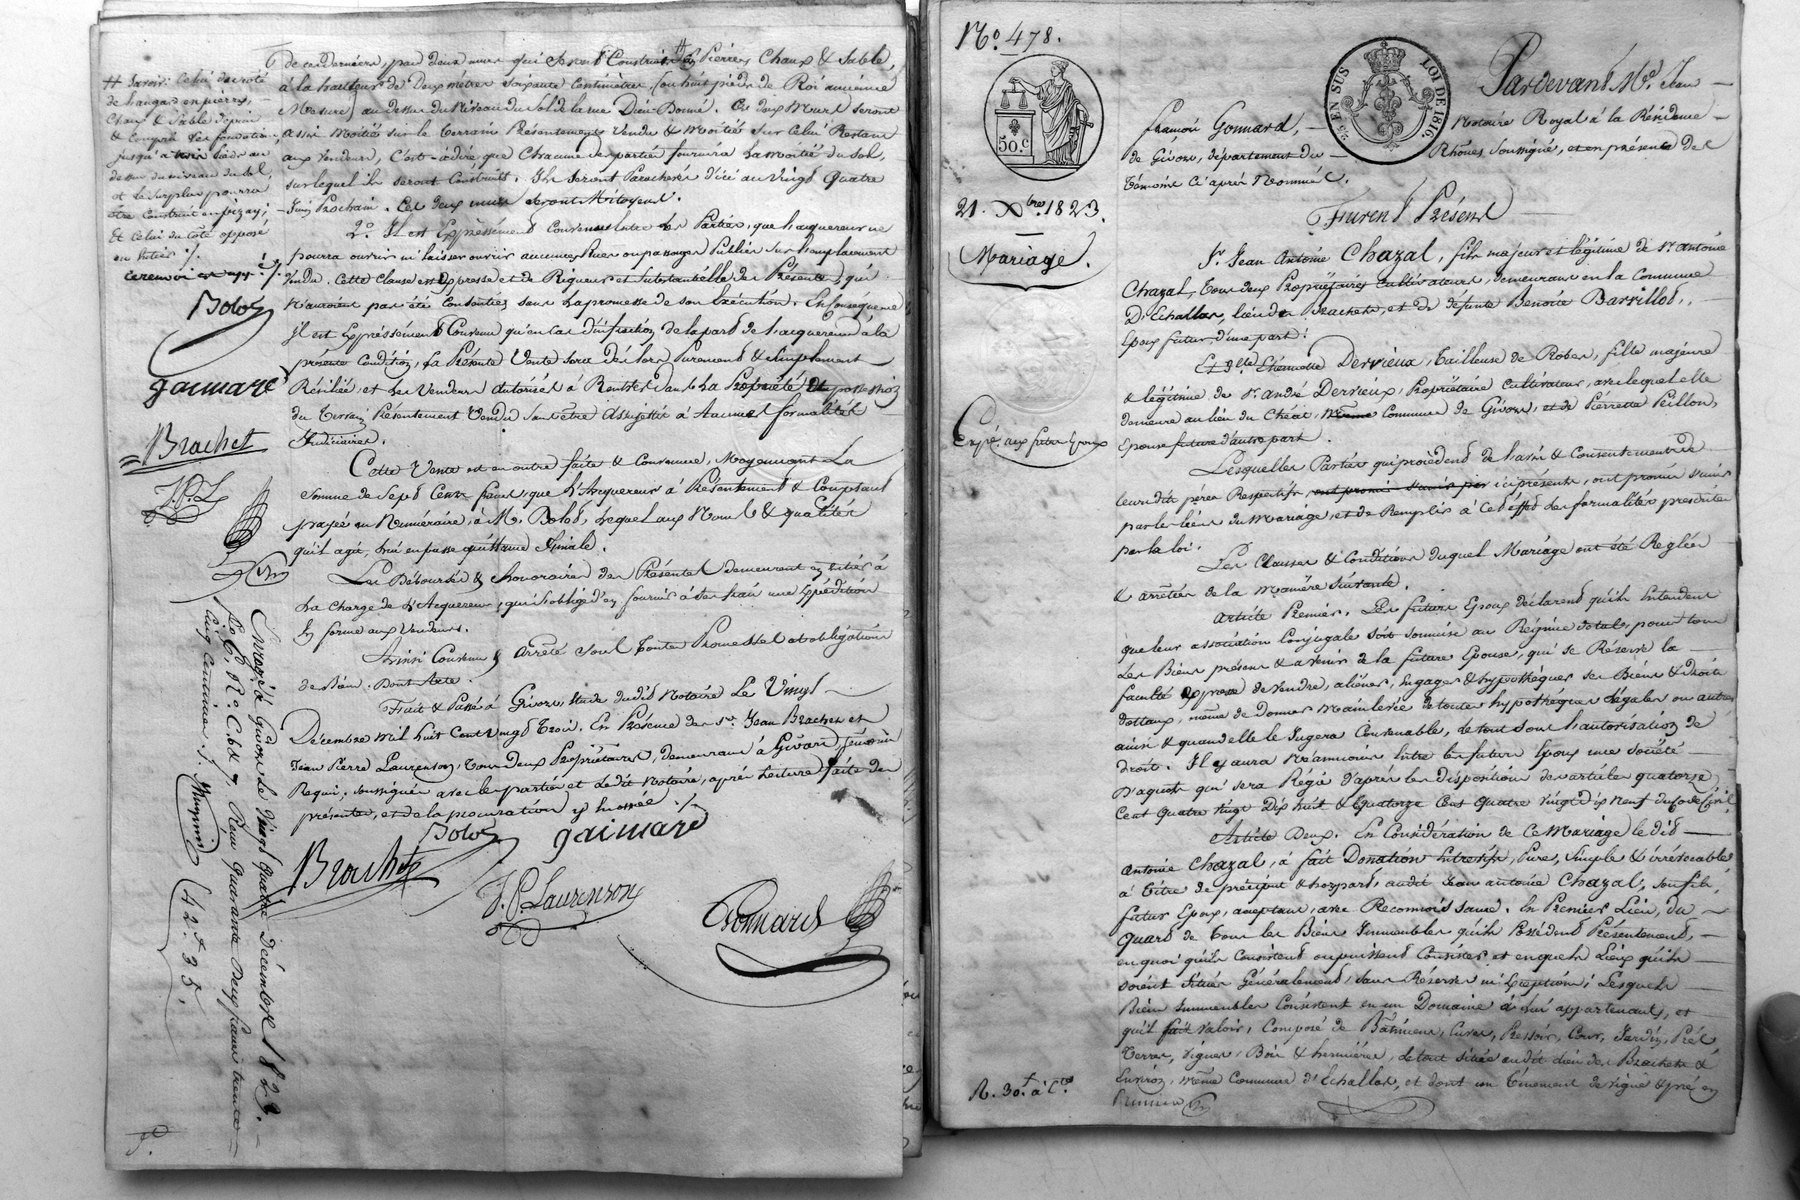 de ces derniers, par deux murs qui seront Construits # en Pierres Chaux & Sable,
à la hauteur de Deux mètres Soixante Centimètres (ou huit pieds de Roi ancienne
Mesure) au dessus du Niveau du Sol de la rue Dieu-Donné. Ces deux Murs seront
assis Moitié sur le Terrain Présentement Vendu & Moitié sur Celui Restant
aux Vendeurs, C'est-à-dire que Chacune des parties fournira la moitié du Sol,
sur lequel ils seront Construits. Ils seront Parachevés d'ici au Vingt Quatre
Juin Prochain. Ces deux murs seront Mitoyens.
2º Il est Expressément Convenu entre les Parties, que l'acquéreur ne
pourra ouvrir ni laisser ouvrir aucunes Rues ou passages Publics sur l'emplacement
Vendu. Cette Clause est Expresse et de Rigueur et Substantielle des Présentes, qui
n'auraient pas été Consenties sans la promesse de son Exécution. En Conséquence
il est Expressément Convenu qu'en cas d'infraction de la part de l'acquéreur à la
présente Condition, la Présente Vente sera dès lors Purement & Simplement
Résiliée, et les Vendeurs autorisés à Rentrer dans la Propriété & possession
du Terrain Présentement Vendu sans être Assujettis à Aucunes formalités
Judiciaires.
Cette Vente est en outre faite & Convenue, Moyennant La
Somme de Sept Cents francs, que l'Acquéreur a Présentement & Comptant
payée en Numéraire, à M. Bolot, lequel aux Noms & qualités
qu'il agit, lui en passe quittance Finale.
Les Déboursés & honoraires des Présentes demeurent en entier à
la Charge de l'Acquéreur, qui s'oblige d'en fournir à ses frais une Expédition
En forme aux Vendeurs.
Ainsi Convenu & Arrêté sous toutes Promesses et obligations
de bien. Dont Acte.
Fait & Passé à Givors, Etude dudit Notaire Le Vingt
Décembre Mil huit Cent Vingt Trois. En Présence des Srs Jean Brachet et
Jean Pierre Laurenson, Tous Deux Propriétaires, demeurant à Givors, témoins
Requis, soussignés avec les parties et ledit Notaire, après lecture faite des
présentes, et de la procuration y énoncée ./.
Bolot
gaimard
Brachet
J. P. Laurenson
Gonnard
# Savoir: Celui du côté
de hangard en pierres,
Chaux & Sable depuis
& compris les fondations
au dessus du niveau du sol,
et le surplus pourra
être Construit en pizay;
Et Celui du côté opposé
en entier ./.
Ce renvoi est app.é ./.
Bolot
gaimard
Brachet
J.P.L
Enregistré à Givors le Vingt Quatre décembre 1823.
fo. Reçu Quarante Deux francs trente
Cinq Centimes ./.
42f 35c
No. 478.
50.c
25 EN SUS LOI DE 1816.
21. Xbre 1823.
Mariage.
Expé. aux futurs Epoux
R. 30f à C.
Pardevant Me. Jean
Framon Gonnard, Notaire Royal à la Résidence
de Givors, département du Rhône, Soussigné, et en présence des
témoins Ci après Nommés.
Furent Présens
Sr. Jean Antoine Chazal, fils majeur et légitime de Sr. antoine
Chazal, Tous deux Propriétaires Cultivateurs, demeurans en la Commune
D'Echallas, lieu de Brachets, et de défunte Benoite Barrillot,
Epoux futur d'une part;
Et Dlle Etiennette Dervieux, Tailleuse de Robes, fille majeure
& légitime de Sr. andré Dervieux, Propriétaire Cultivateur, avec lequel elle
demeure au lieu du Chéat, Commune de Givors, et de Pierrette Peillon,
Epouse future d'autre part.
Lesquelles Parties qui procèdent de l'avis & Consentement de
leurs dits pères Respectifs, ici présents, ont promis s'unir
par les liens du Mariage, et de Remplir à Cet effet les formalités prescrites
par la loi.
Les Clauses & Conditions duquel Mariage ont été Réglées
& arrêtées de la Manière Suivante.
Article Premier. Les futurs Epoux déclarent qu'ils Entendent
que leur association Conjugale soit soumise au Régime dotal, pour tous
Les Biens présens & à venir de la future Epouse, qui se Réserve la
faculté Expresse de vendre, aliéner, Engager & hypothéquer ses Biens & droits
dottaux, même de donner Mainlevée de toutes hypothèques légales ou autres
ainsi & quand elle le Jugera Convenable, le tout sous l'autorisation de
droit. Il y aura Néanmoins Entre les futurs Epoux une Société
D'acquêts qui sera Régie d'après les dispositions des articles quatorze
Cent Quatre Vingt Dix huit & Quatorze Cent Quatre vingt Dix Neuf du Code Civil
Article Deux. En Considération de Ce Mariage ledit
Antoine Chazal, a fait Donation Entrevifs, Pure, Simple & irrévocable
à titre de préciput & hors part, audit Jean antoine Chazal, son fils,
futur Epoux, acceptant, avec Reconnoissance. En Premier Lieu, du
Quart de Tous les Biens Immeubles qu'il Possède Présentement,
en quoi qu'ils Consistent ou puissent Consister et en quels Lieux qu'ils
soient Situés Généralement, sans Réserve ni Exception; Lesquels
Biens Immeubles Consistent en un Domaine à lui appartenant, et
qu'il fait valoir, Composé de Bâtimens, Cuves, Pressoir, Cour, Jardin, Prés
Terres, Vignes, Bois & hermières, le tout situé audit lieu de Brachets &
Environ, même Commune d'Echallas, et dont un tènement de vigne & pré en